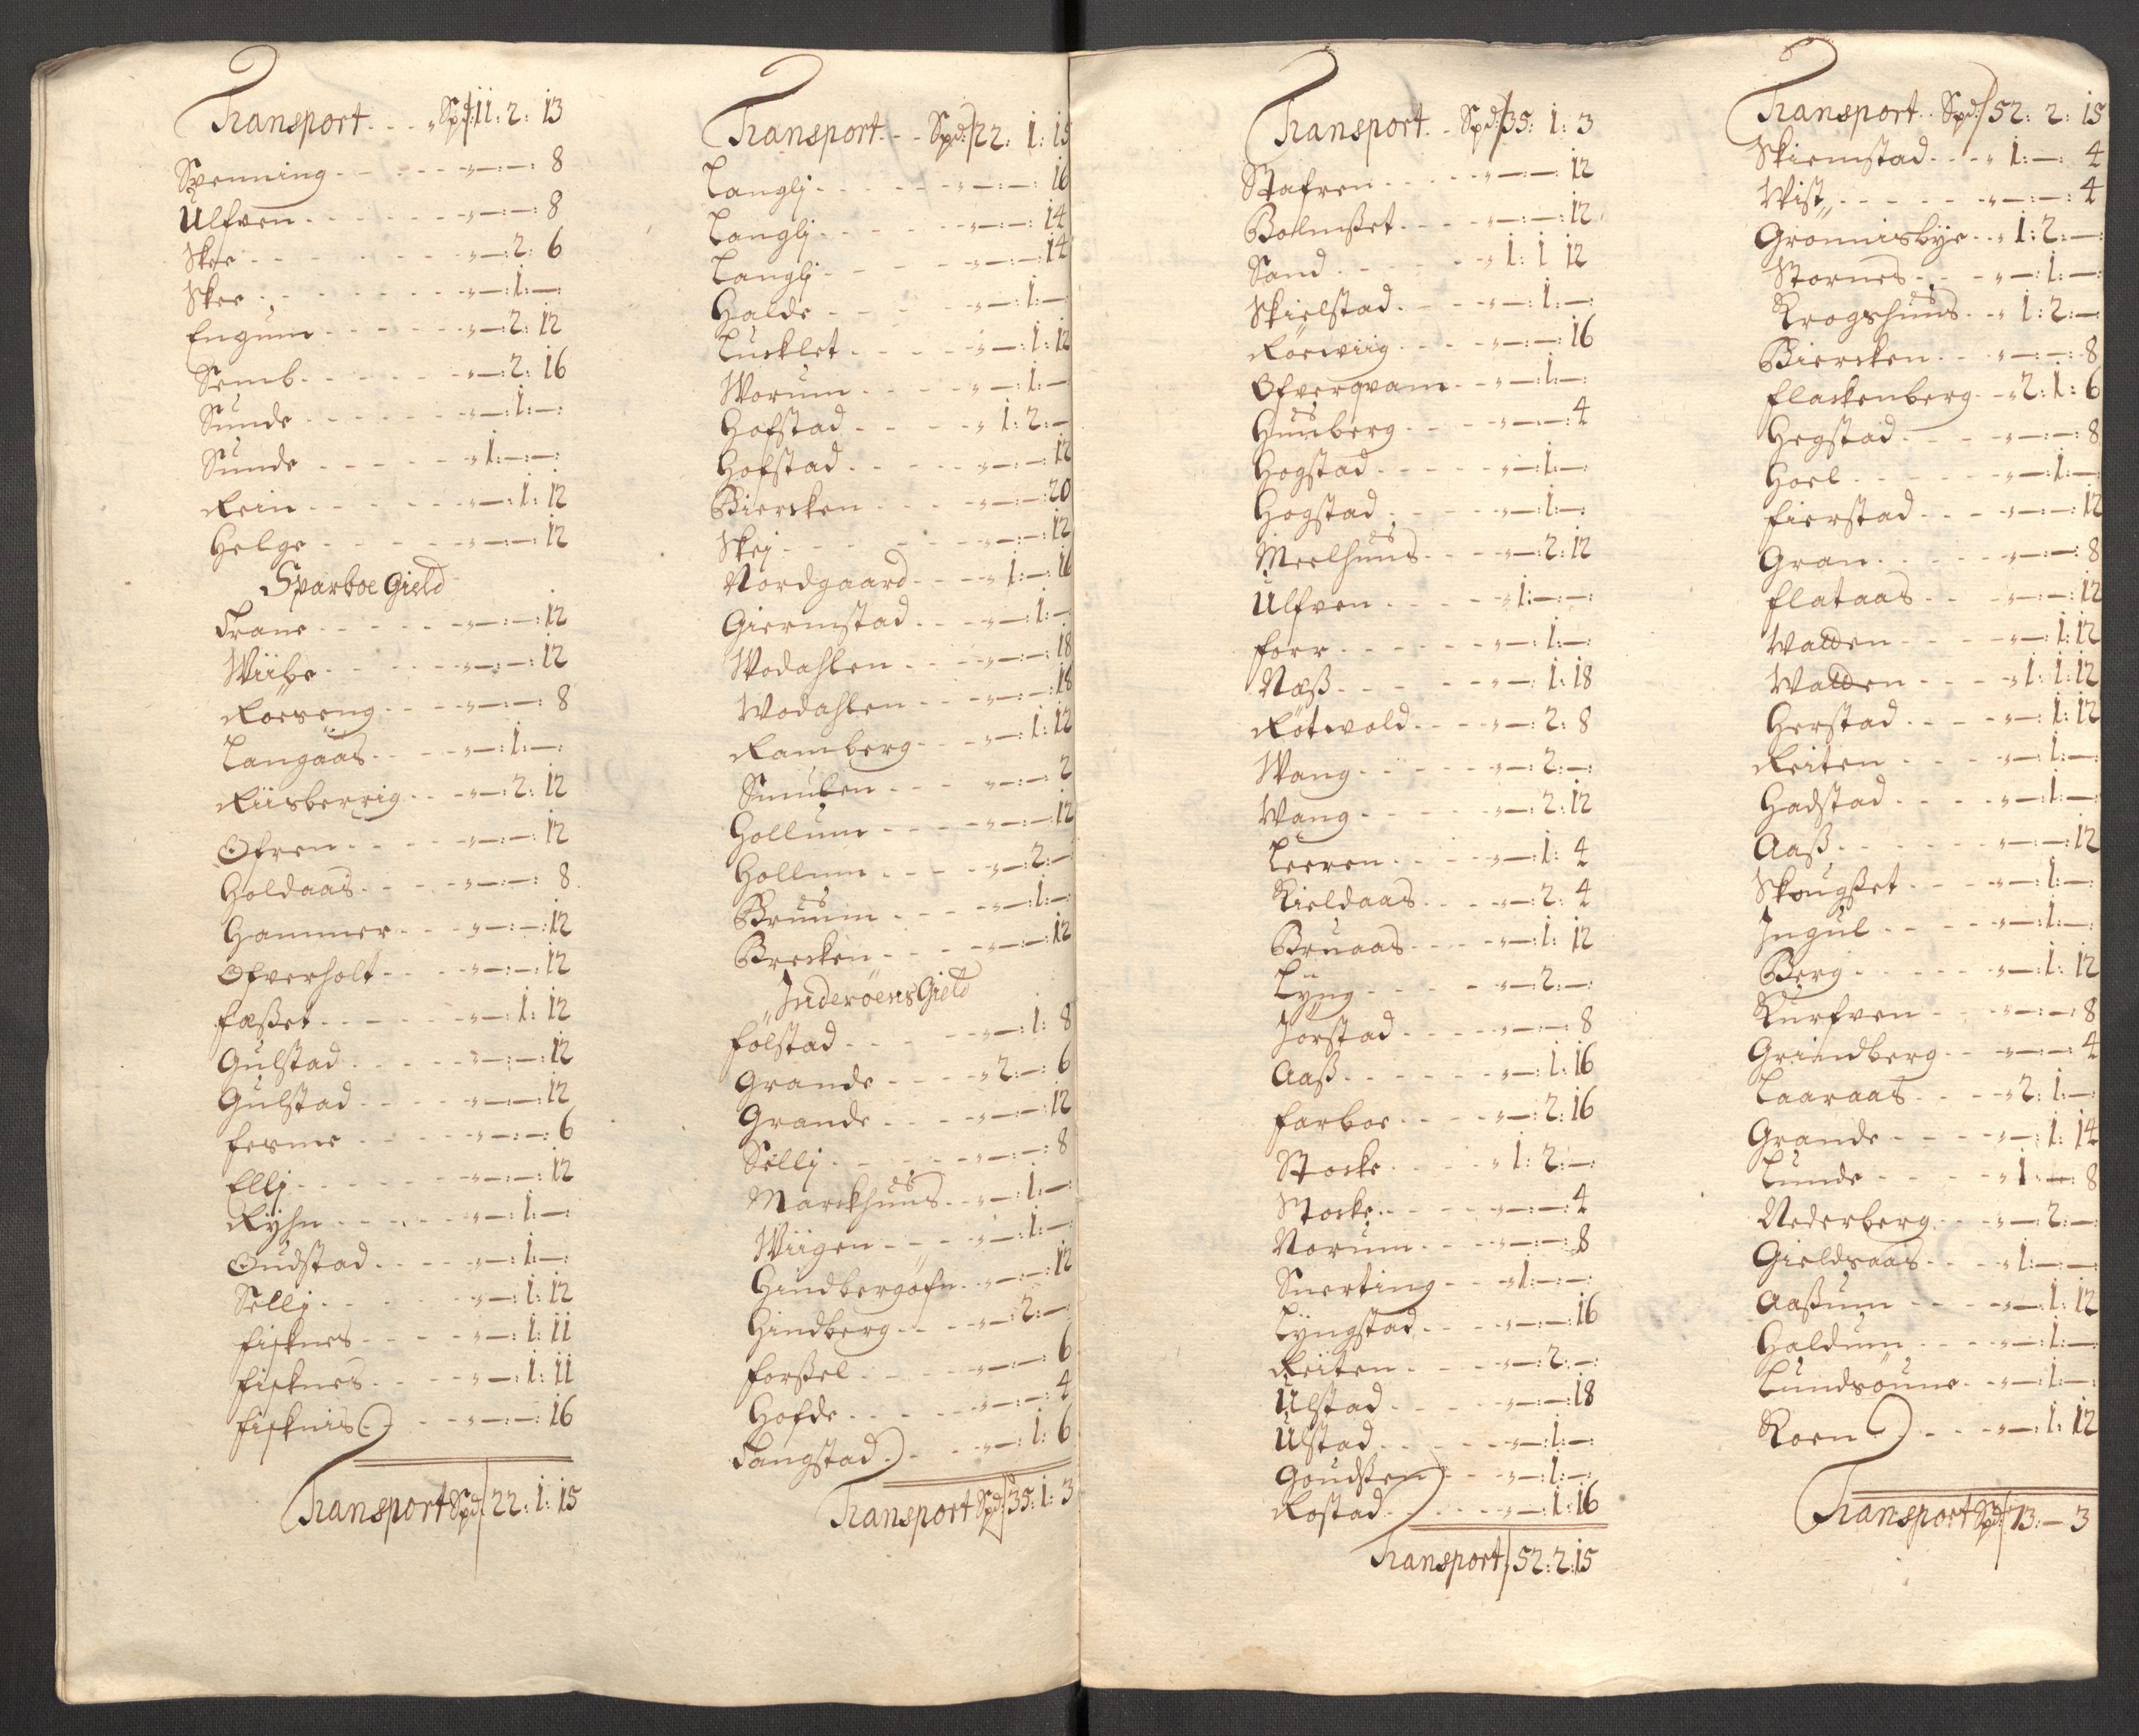 Transport - - - Spd: 11: 2: 13
Spenning - - - - - - „ —: —: 8
Ulfven - - - - - - „ —: —: 8
Skee - - - - - - „ —: 2: 6
Skee - - - - - - „ —: 1: —:
Engum - - - - - - „ —: 2: 12
Semb - - - - - - „ —: 2: 16
Sunde - - - - - - „ —: 1: —:
Sunde - - - - - - „ 1: —: —:
Rein - - - - - - „ —: 1: 12
Helge - - - - - - „ —: —: 12
Sparboe Gield
Trane - - - - - - „ —: —: 12
Wiibe - - - - - - „ —: —: 12
Roeseng - - - - „ —: —: 8
Langaas - - - - „ —: 1: —:
Riisberrig - - - „ —: 2: 12
Ofren - - - - - „ —: —: 12
Holdaas - - - - „ —: —: 8
Hammer - - - - „ —: —: 12
Ofverholt - - - „ —: —: 12
Fæsset - - - - - „ —: 1: 12
Gulstad - - - - „ —: —: 12
Gulstad - - - - „ —: —: 12
Fesme - - - - - „ —: —: 6
Ellj - - - - - - „ —: —: 12
Rÿhn - - - - - „ —: 1: —:
Oudstad - - - - „ —: 1: —:
Sellj - - - - - „ —: 1: 12
Fisknes - - - - „ —: 1: 11
Fisknes - - - - „ —: 1: 11
Fisknis - - - „ —: —: 16
Transport Spd: 22: 1: 15
Transport - - Spd: 22: 1: 15
Langlj - - - - - - „ —: —: 16
Langlj - - - - - - „ —: —: 14
Langlj - - - - - - „ —: —: 14
Halde - - - - - „ —: 1: —:
Lucklet - - - - - „ —: 1: 12
Worum - - - - - „ —: 1: —
Hofstad - - - - - „ 1: 2: —
Hofstad - - - - - „ —: —: 12
Biercken - - - - „ —: —: 20
Skej - - - - - - „ —: —: 12
Nordgaard - - - - „ 1: —: 16
Giermstad - - - - „ —: 1: —:
Wodahlen - - - - „ —: —: 18
Wodahlen - - - - „ —: —: 18
Ramberg - - - „ —: 1: 12
Smulen - - - „ —: —: 2
Hollum - - - - „ —: —: 12
Hollum - - - - „ —: 2: —
Bruum - - - - „ —: 1: —:
Brecken - - - - „ —: —: 12
Inderøens Gield
Følstad - - - - „ —: 1: 8
Grande - - - - „ 2: —: 6
Grande - - - - „ —: —: 12
Sellj - - - - - „ —: —: 8
Marckhuus - - „ —: 1: —:
Wiigen - - - - „ —: 1: —:
Hindbergøfn - - „ —: —: 12
Hindberg - - - „ —: 2: —:
Forssel - - - - „ —: —: 6
Hofde - - - - - „ —: —: 4
Tangstad - - - „ —: 1: 6
Transport Spd: 35: 1: 3
Transport - Spd: 35: 1: 3
Stafren - - - - - „ —: —: 12
Bolmsset - - - - „ —: —: 12
Sand - - - - - - „ 1: 1 12
Skielstad - - - - „ —: 1: —:
Roewiig - - - - „ —: —: 16
Ofverqvam - - „ —: 1: —:
Huusberg - - - „ —: —: 4
Hogstad - - - - „ —: 1: —:
Hogstad - - - - „ —: 1: —:
Meelhuus - - - „ —: 2: 12
Ulfven - - - - - „ 1: —: —:
Forr - - - - - - „ —: 1: —:
Næss - - - - - - „ —: 1: 18
Røtwold - - - - „ —: 2: 8
Wang - - - - - „ —: 2: —:
Wang - - - - - „ —: 2: 12
Leeren - - - - - „ —: 1: 4
Kieldaas - - - - „ —: 2: 4
Bruaas - - - - „ —: 1: 12
Lÿng - - - - - „ —: 2: —:
Jorstad - - - - - „ —: —: 8
Aass - - - - - - „ —: 1: 16
Farboe - - - - - „ —: 2: 16
Stocke - - - - - „ 1: 2: —:
Stocke - - - - - „ —: —: 4
Norum - - - - „ —: —: 8
Snerting - - - „ 1: —: —:
Lÿngstad - - - - „ —: —: 16
Reiten - - - - - „ —: 2: —:
Ulstad - - - - - „ —: —: 18
Ulstad - - - - - „ —: 1: —:
Goudsten - - - „ —: 1: —:
Rostad - - - - - „ —: 1: 16
Transport 52: 2: 15
Transport - - Spd: 52: 2: 15
Skiemstad - - - „ 1: —: 4
Wist - - - - - - „ —: —: 4
Gronnisbÿe - - „ 1: 2: —:
Stornes - - - - „ —: 1: —:
Krogshuus - - „ 1: 2: —:
Biercken - - - „ —: —: 8
Flackenberg - - „ 2: 1: 6
Hegstad - - - - „ —: —: 8
Hoel - - - - - - „ —: 1: —:
Fierstad - - - - „ —: —: 12
Gran - - - - - „ —: —: 8
Flataas - - - - „ —: —: 12
Walden - - - - „ —: 1: 12
Walden - - - - „ 1: 1: 12
Herstad - - - - „ —: 1: 12
Reiten - - - - - „ —: 1: —:
Hadstad - - - - „ —: 1: —:
Aass - - - - - - „ —: —: 12
Skougsset - - - „ —: 1: —:
Ingul - - - - - „ —: 1: —:
Berg - - - - - „ —: 1: 12
Kurfven - - - - „ —: —: 8
Grindberg - - „ —: —: 4
Laaraas - - - - „ 2: 1: —:
Grande - - - - „ —: 1: 14
Lunde - - - - - „ 1: —: 8
Nederberg - - - „ —: 2: —:
Gieldsaas - - - „ 1: —: —
Aassum - - - - „ —: 1: 12
Haldum - - - - „ —: 1: —:
Lundsoune - - „ —: 1: —:
Koen - - - - „ —: 1: 12
Transport Spd: 73: — 3